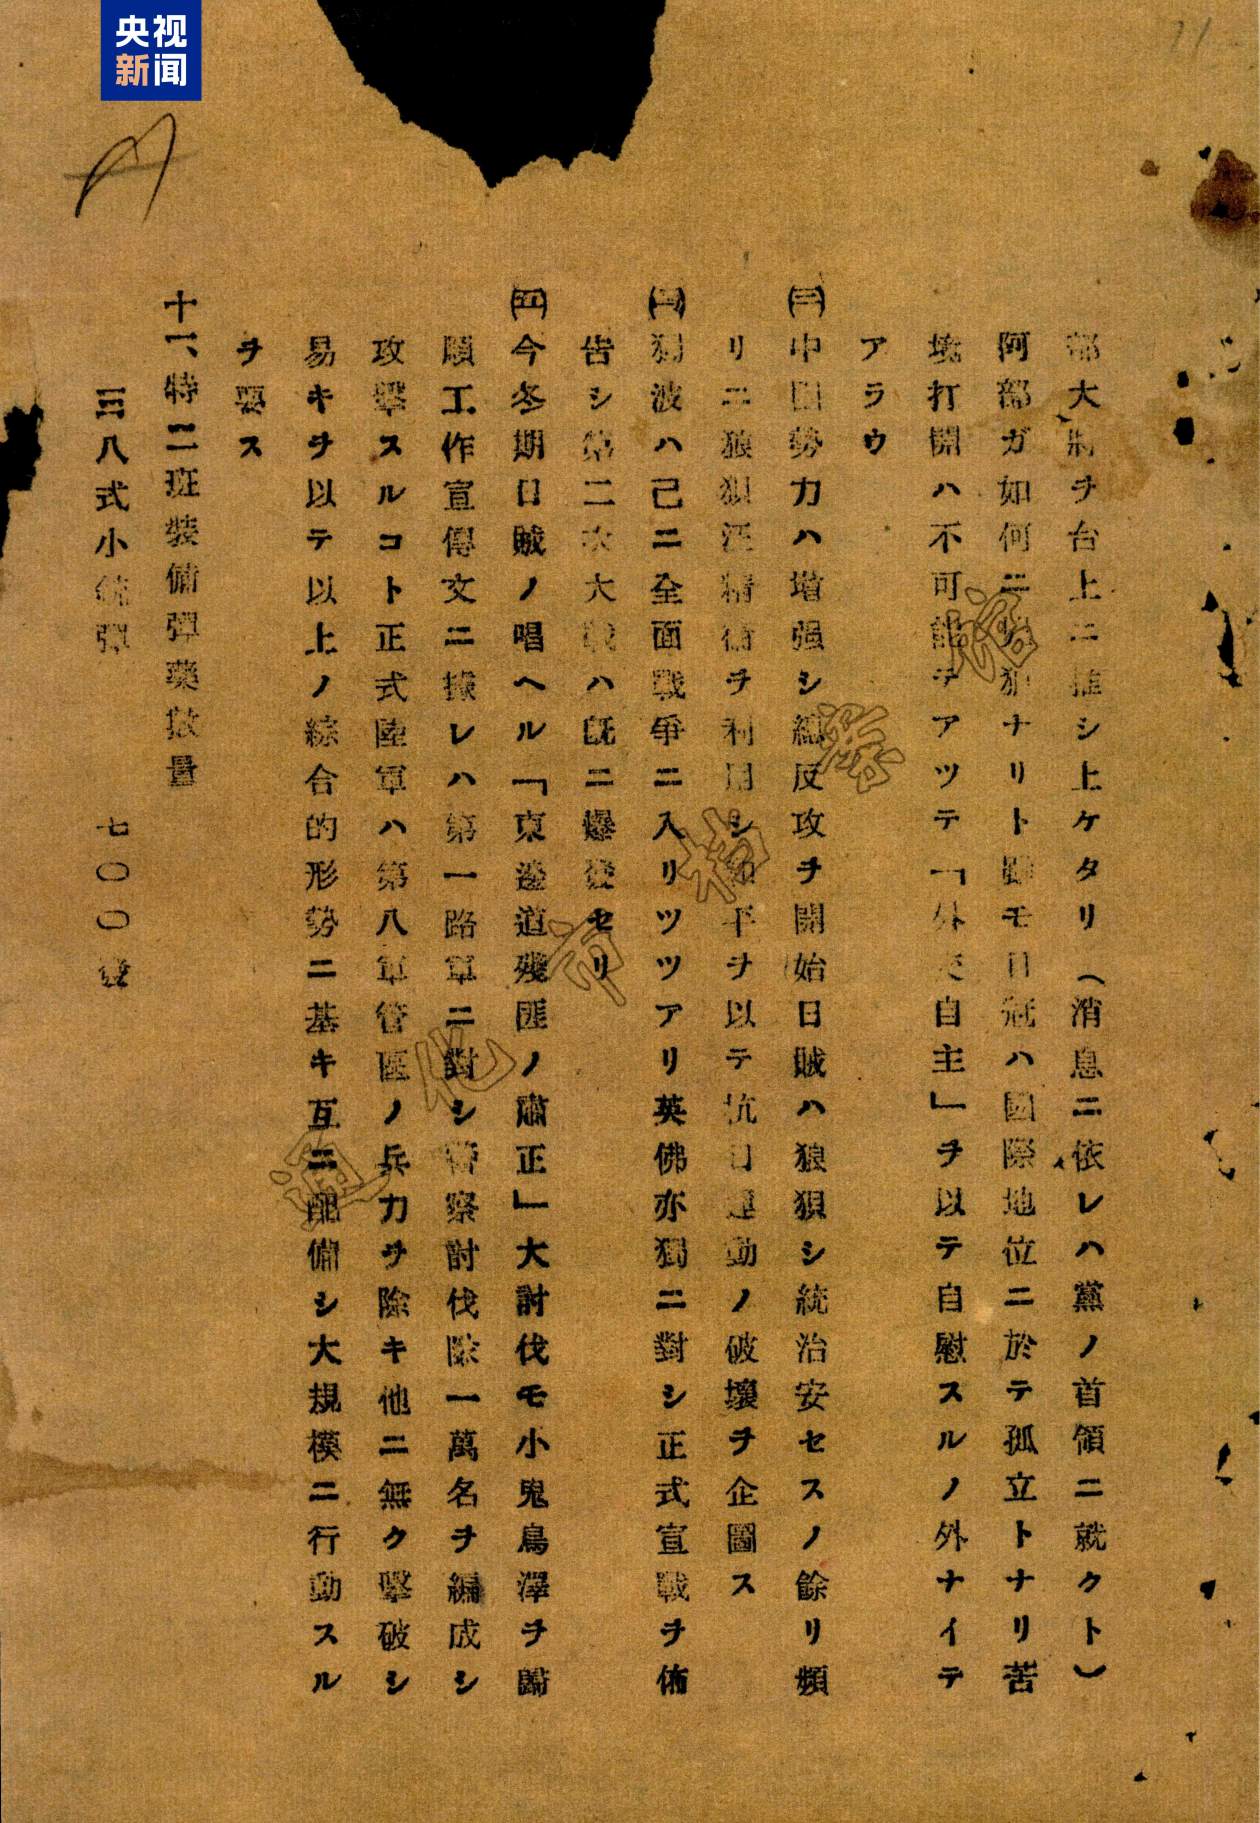 央视
新闻
11
部大將ヲ台上ニ推シ上ケタリ（消息ニ依レハ黨ノ首領ニ就クト）
阿部ガ如何ニ ナリト雖モ日冠ハ國際地位ニ於テ孤立トナリ苦
境打開ハ不可能デアツテ「外交自主」ヲ以テ自慰スルノ外ナイテ
アラウ
(三)中國勢力ハ增强シ總反攻ヲ開始日賊ハ狼狽シ統治安セスノ餘リ頻
リニ狼狽汪精衛ヲ利用シ和平ヲ以テ抗日運動ノ破壞ヲ企圖ス
波ハ己ニ全面戰爭ニ入リツツアリ英佛亦獨ニ對シ正式宣戰ヲ佈
告シ第二次大戰ハ既ニ爆發セリ
今冬期日賊ノ唱ヘル「東邊道殘匪ノ肅正」大討伐モ小鬼鳥澤ヲ歸
順工作宣傳文ニ據レハ第一路軍ニ對シ警察討伐隊一萬名ヲ編成シ
攻擊スルコト正式陸軍ハ第八軍管區ノ兵力ヲ除キ他ニ無ク擊破シ
易キヲ以テ以上ノ綜合的形勢ニ基キ互ニ配備シ大規模ニ行動スル
ヲ要ス
十一、特二班裝備彈藥數量
三八式小銃彈 七〇〇發
通化市档案馆